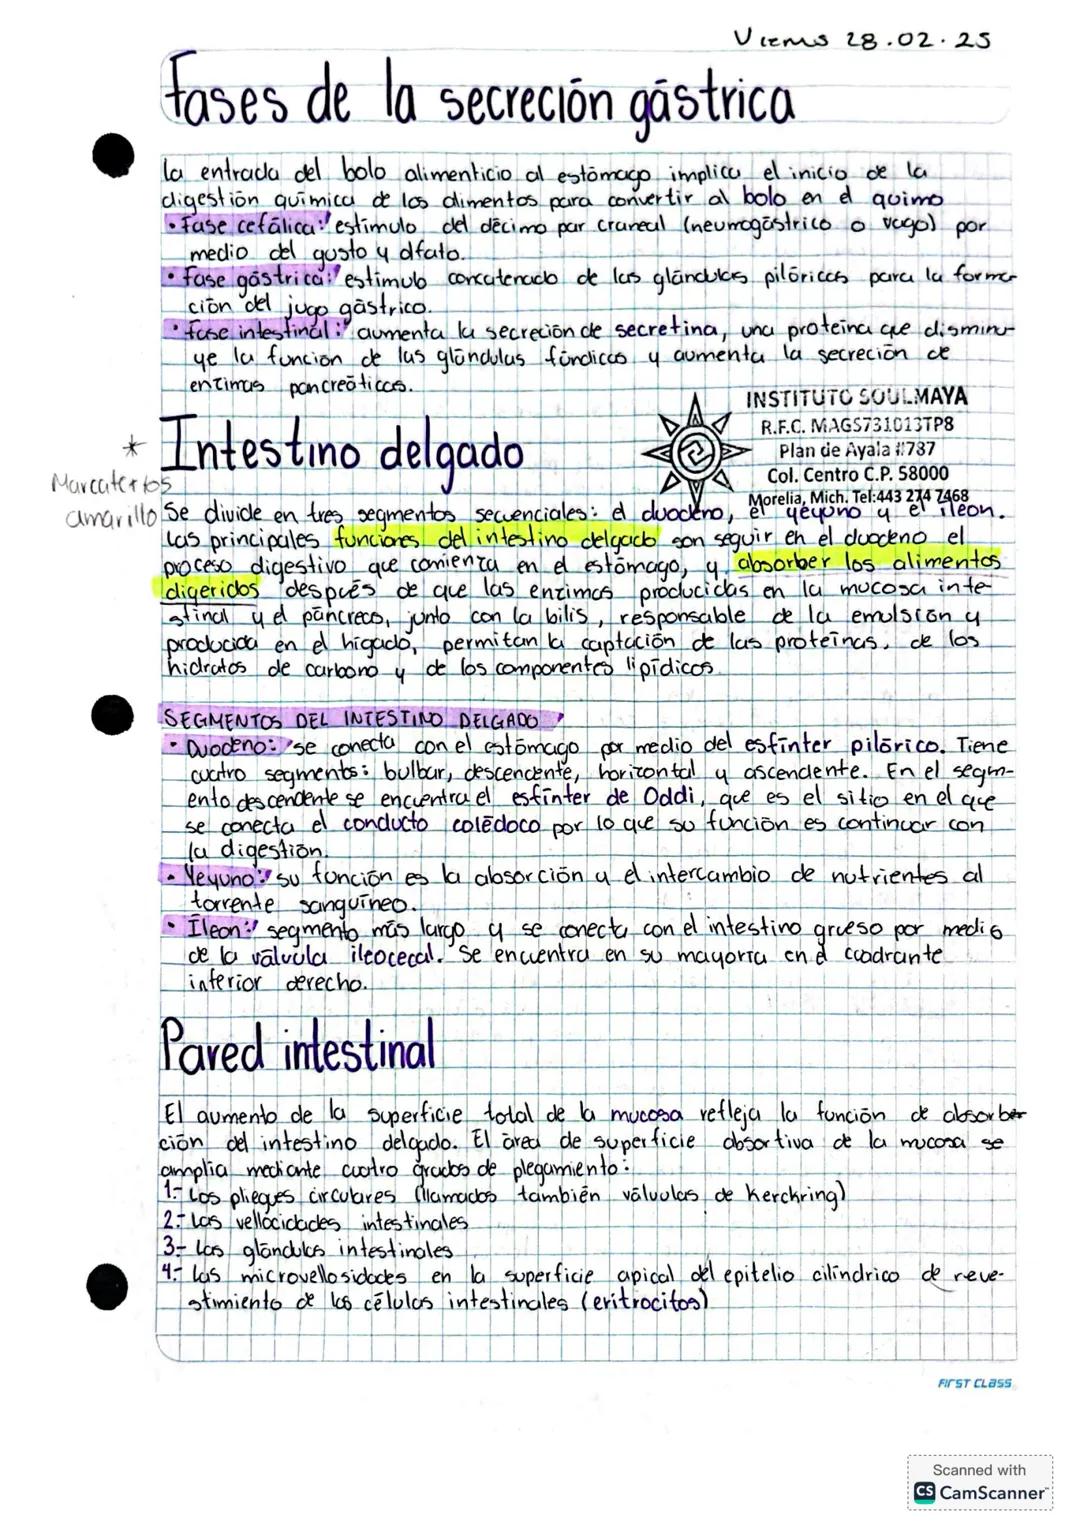 Viernes 28.02.25
Fases de la secreción gástrica
La entrada del bolo alimenticio al estómago implica el inicio de la
digestión química de los alimentos para convertir al bolo en el quimo
• Fase cefálica: estimulo del décimo par craneal (neumogástrico o vago) por
medio del gusto y olfato.
• Fase gástrica: estimulo concatenado de las glándulas pilóricas para la forma-
ción del jugo gástrico.
• Fase intestinal: aumenta la secreción de secretina, una proteína que disminu-
ye la función de las glándulas fúndicas y aumenta la secreción de
enzimas pancreáticas.
INSTITUTO SOULMAYA
R.F.C. MAGS731013TP8
Plan de Ayala #787
Col. Centro C.P. 58000
Morelia, Mich. Tel:443 274 7468
* Intestino delgado
Marcatextos
amarillo
Se divide en tres segmentos secuenciales: el duodeno, el yeyuno y el íleon.
Las principales funciones del intestino delgado son seguir en el duodeno el
proceso digestivo que comienza en el estómago, y absorber los alimentos
digeridos después de que las enzimas producidas en la mucosa inte-
stinal y el páncreas, junto con la bilis, responsable de la emulsión y
producida en el hígado, permitan la captación de las proteínas, de los
hidratos de carbono y de los componentes lipídicos.
SEGMENTOS DEL INTESTINO DELGADO
• Duodeno: se conecta con el estómago por medio del esfínter pilórico. Tiene
cuatro segments: bulbar, descendente, horizontal y ascendente. En el segm-
ento descendente se encuentra el esfínter de Oddi, que es el sitio en el que
se conecta el conducto colédoco por lo que su función es continuar con
la digestión.
• Yeyuno: su función es la absorción y el intercambio de nutrientes al
torrente sanguíneo.
• Íleon: segmento más largo y se conecta con el intestino grueso por medio
de la válvula ileocecal. Se encuentra en su mayoría en el cuadrante
inferior derecho.
Pared intestinal
El aumento de la superficie total de la mucosa refleja la función de absorber
ción del intestino delgado. El área de superficie absortiva de la mucosa se
amplia mediante cuatro grados de plegamiento:
1.- Los pliegues circulares (llamados también válvulas de Kerckring)
2.- Las vellocidades intestinales
3.- Las glándulas intestinales
4.- Las microvellosidades en la superficie apical del epitelio cilíndrico de reve-
stimiento de las células intestinales (eritrocitos)
FIRST CLASS
Scanned with
CS CamScanner